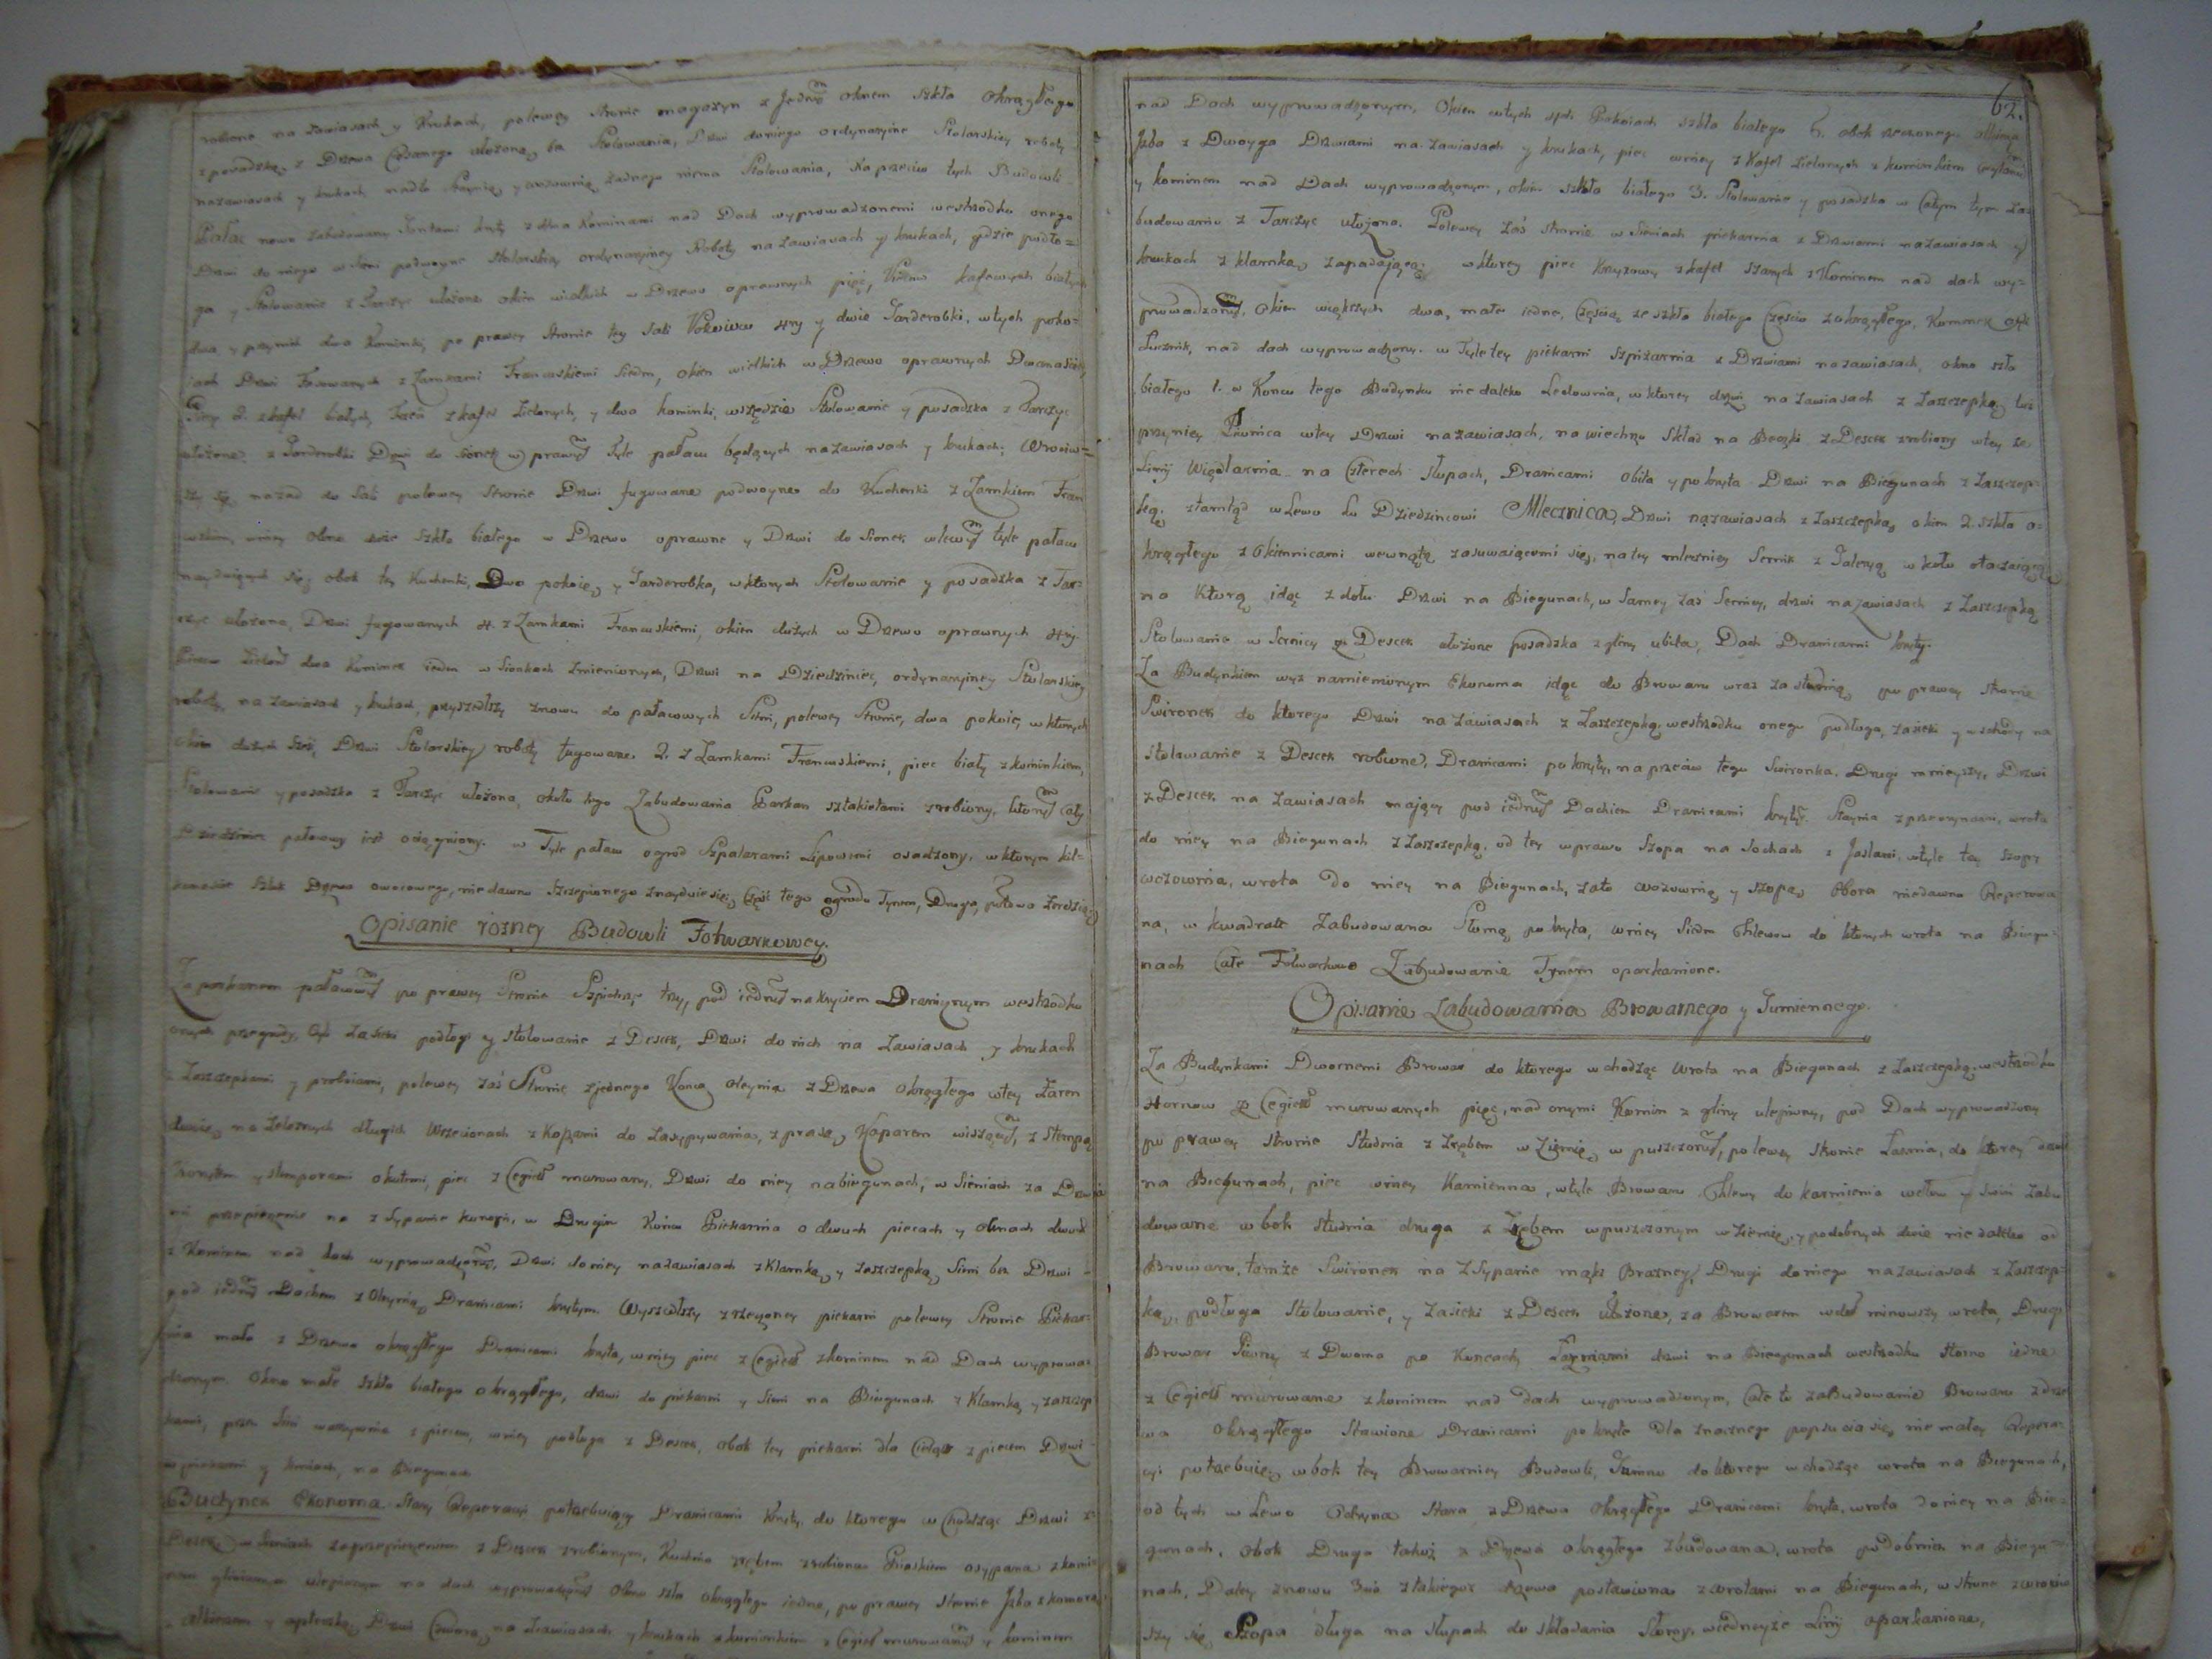 robione na zawiasach y Krukach, polewey stronie magazyn z Jednym oknem szkła okrągłego
z posadzką z Drzewa Ciosanego ułożoną, bez Stolowania, Drzwi doniego ordynaryine Stolarskiey roboty
nazawiasach y krukach nadto Staynią y wozownią żadnego niema Stolowania, Naprzeciw tych Budowli
Pałac nowo zabudowany Gontami kryty z dwa Kominami nad Dach wyprowadzonemi westrzodku onego
Drzwi do niego w Sieni podwoyne Stolarskiey ordynaryiney Roboty na zawiasach y krukach, gdzie podło=
ga y Stolowanie z Tarcyc ułożone okien wielkich w Drzewo oprawnych pięć, Piecow kaflowych białych
dwa, y przynich dwa Kominki, po prawey stronie tey Sali Pokoiow 4ry y dwie Garderobki, wtych poko=
iach Drzwi Fasowanych z Zamkami Francuskiemi Siedm, okien wielkich w Drzewo oprawnych Dwanaście,
Piecy 2. z kafel białych, Trzeci z kafel Zielonych, y dwa kominki, wszędzie Stolowanie y posadzka z Tarcyc
ułożone, z Garderobki Drzwi do sionek w prawym Tyle pałacu będących nazawiasach y krukach; Wrociw=
szy się nazad do Sali polewey Stronie Drzwi fugowane podwoyne do Kuchenki z Zamkiem Fran
cuskim, wniey okno szkło białego w Drzewo oprawne y Drzwi do Sionek wlewym tyle pałacu
znayduiących się, obok tey Kuchenki, Dwa pokoie, y Garderobka, wktorych Stolowanie y posadzka z Tar=
cyc ułożone, Drzwi fugowanych 4. z Zamkami Francuskiemi, okien dużych w Drzewo oprawnych 4ry.
Piecow Zielonych dwa Kominek ieden w Sionkach zmienionych, Drzwi na Dziedziniec, ordynaryiney Stolarskiey
roboty, na zawiasach y krukach, przyszedłszy znowu do pałacowych Sieni, polewey Stronie, dwa pokoie, w ktorych
okien dużych sześć, Drzwi Stolarskiey roboty fugowane 2. z Zamkami Francuskiemi, piec biały z kominkiem,
Stolowanie y posadzka z Tarcyc ułożona, około tego Zabudowania Parkan sztakietami zrobiony, ktorym cały
Dziedziniec pałacowy iest ociągniony. w Tyle pałacu ogrod Szpalerami Lipowemi osadzony, wktorym kil=
kanaście sztuk Drzewa owocowego, niedawno szczepionego znayduie się, część tego ogrodu Tynem, Druga, połowa żerdziami
Opisanie rożney Budowli Folwarkowey.
Za parkanem pałacowym po prawey Stronie Szpichrze trzy, pod iednym nakryciem Dranicznym westrzodku
onych przegrody, zasieki podłogi y stolowanie z Desek, Drzwi do nich na zawiasach y krukach
z zaszczepkami y probojami, polewey zaś Stronie zjednego Końca oleynia z Drzewa okrągłego wtey Żaren
dwoie, na Zelaznych długich Wrzecionach z Koszami do Zasypywania, z prasą, Koparem wiszącym, z Stempą
Korytem y stemporami okutemi, piec z Cegieł murowany, Drzwi do niey nabiegunach, w Sieniach za Drzwia
mi przepierzenie na zsypanie konopi, w Drugim Końcu Piekarnia o dwuch piecach y oknach dwoch
z Kominem nad dach wyprowadzonym, Drzwi do niey nazawiasach z Klamką y zaszczepką, Sieni bez Drzwi -
pod iednym Dachem z Oleynią, Dranicami krytym. Wyszedłszy z rzeczoney piekarni polewey Stronie Piekar=
nia mała z Drzewa okrągłego Dranicami kryta, wniey piec z Cegieł z kominem nad Dach wyprowa
dzonym. Okno małe szkło białego okrągłego, drzwi do piekarni y Sieni na Biegunach z Klamką y zaszczep
kami, przez Sień warzywnia z piecem, wniey podłoga z Desek, obok tey piekarni dla Cieląt z piecem Drzwi
w piekarni y Sieniach, na Biegunach
Budynek Ekonoma Stary Reperacyi potrzebuiący Dranicami Kryty, do ktorego wchodząc Drzwi z
Desek, w Sieniach zaprzepierzeniem z Desek zrobionym, Kuchnia zrębem zrobiona Piaskiem osypana z komi
nem glinianym ulepionym na dach wyprowadzonym okno szkła okrągłego iedne, po prawey stronie Izba z komorą
z alkierzem y apteczką, Drzwi Czworo na Zawiasach y krukach z kominkiem z Cegieł murowanym y kominem
62.
nad Dach wyprowadzonym, Okien wtych Pokoiach szkła białego 5. obok rzeczonego alkierza
Izba z Dwoyga Drzwiami na zawiasach y krukach, piec wniey z Kafel zielonych z kominkiem
y kominem nad Dach wyprowadzonym, okien szkła białego 3. Stolowanie y posadzka w Całym tym Za=
budowaniu z Tarcyc ułożona. Polewey zaś stronie w Sieniach piekarnia z Drzwiami nazawiasach y
krukach z klamką zapadaiącą, wktorey piec Kryzowy z kafel szarych z Kominem nad dach wy=
prowadzonym, okien większych dwa, małe iedne, Częścią ze szkła białego Częścią z okrągłego, Kominek
Łucznik, nad dach wyprowadzony. w Tyle tey piekarni Szpiżarnia z Drzwiami nazawiasach, okno szła
białego 1. w Koncu tego Budynku niedaleko Ledownia, w ktorey drzwi na zawiasach z Zaszczepką, tuż
przy niey Piwnica wtey Drzwi nazawiasach, na wierzchu Skład na Beczki z Desek zrobiony wtey że
Linij Więdlarnia na Czterech słupach, Dranicami obita y pokryta Drzwi na Biegunach z Zaszczep=
ką. ztamtąd w Lewo ku Dziedzincowi Mlecznica, Drzwi nazawiasach z zaszczepką, okien 2. szkła o=
krągłego z Okiennicami wewnątrz zasuwaiącemi się, na tey mlecznicy Sernik z Galeryą w koło otaczaiącą
na Ktorą idąc z dołu Drzwi na Biegunach, w Samey zaś Sernicy, drzwi nazawiasach z Zaszczepką
Stolowanie w Sernicy z Desek ułożone posadzka z gliny ubita, Dach Dranicami kryty.
Za Budynkiem wyż namienionym Ekonoma idąc do Browaru wraz za studnią, po prawey stronie
Swironek do ktorego Drzwi na zawiasach z Zaszczepką, westrzodku onego podłoga, zasieki y wschody na
stolawanie z Desek robione, Dranicami pokryty, na przeciw tego Swironka. Drugi mnieyszy, Drzwi
z Desek na zawiasach maiący pod iednym Dachem Dranicami krytym. Staynia zprzerynami, wrota
do niey na Biegunach z Zaszczepką, od tey wprawo Szopa na sochach z Jaslami, wtyle tey szopy
wozownia, wrota do niey na Biegunach, zato wozownią y szopą, Obora niedawno Reperowa
na, w kwadrat zabudowana Słomą pokryta, wniey Siedm Chlewow do ktorych wrota na Biegu=
nach Całe Folwarkowe Zabudowanie Tynem oparkanione.
Opisanie Zabudowania Browarnego y Gumiennego.
Za Budynkami Dwornemi Browar do ktorego wchodząc Wrota na Biegunach z Zaszczepką, westrzodku
Hornow z Cegieł murowanych pięć, nad onymi Komin z gliny ulepiony, pod Dach wyprowadzony
po prawey stronie Studnia z Zrębem w Ziemię w puszczonym, polewey stronie Łaznia, do ktorey drzwi
na Biegunach, piec wniey Kamienna, wtyle Browaru Chlewy do karmienia wołow y swini zabu
dowane wbok studnia druga z Zrębem wpuszczonym w ziemię, y podobnych dwie niedaleko od
Browaru, tamże Swironek na Zsypanie mąki Brazney, Drzwi doniego nazawiasach z Zaszczep=
ką, podłoga Stolowanie, y zasieki z Desek ułożone, za Browarem wdoł minowszy wrota, Drugi
Browar Piwny z Dwoma po Końcach Łazniami drzwi na Biegunach westrzodku Horno iedne
z Cegieł murowane z kominem nad dach wyprowadzonym, Całe to zabudowanie Browaru z drze
wa Okrągłego Stawione Dranicami pokryte dla znacznego popsucia się, nie małey Repera=
cyi potrzebuie, wbok tey Browarney Budowli, Gumno doktorego wchodząc wrota na Biegunach,
od tych w Lewo Odryna Stara z Drzewa Okrągłego Dranicami kryta, wrota doniey na Bie=
gunach. obok Druga takaż z Drzewa okrągłego zbudowana, wrota podobnież na Biegu=
nach, Daley znowu 3cia z takiegoż drzewa postawiona z wrotami na Biegunach, w stronę zwrociw
szy się, Szopa długa na słupach do składania Słomy, wiedneyże Linij oparkaniona,